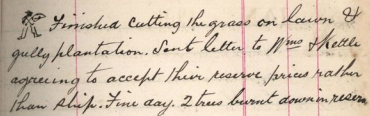 Finished cutting the grass on lawn &
gully plantation. Sent letter to Wms & Kettle
agreeing to accept their reserve prices rather
than ship. Fine day. 2 trees burnt down in reserve